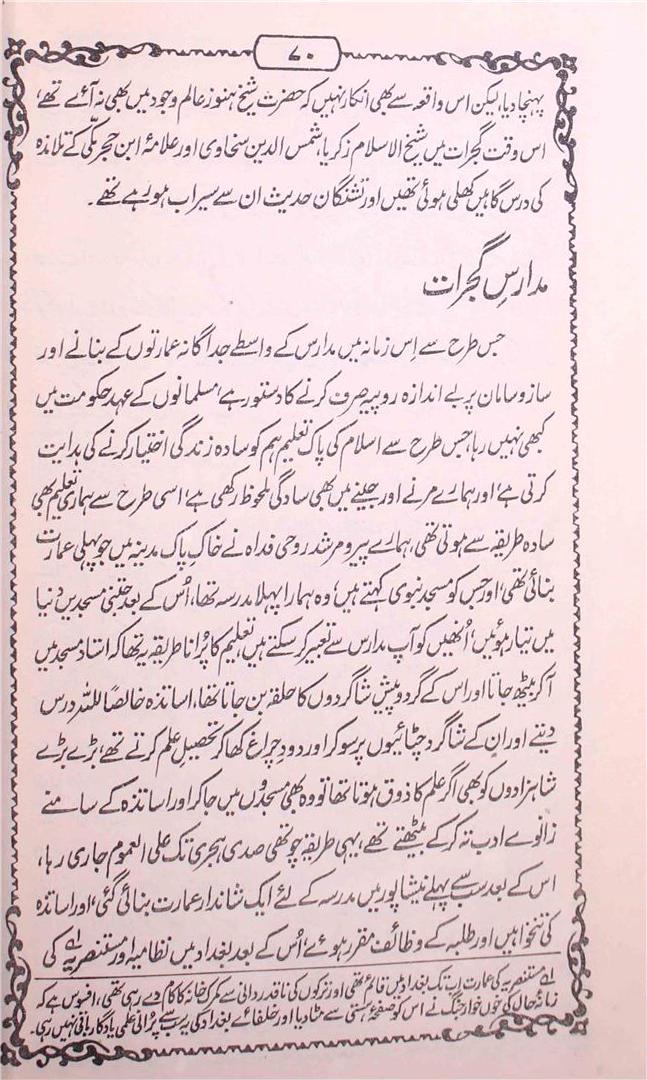 ۷۰
پہنچا دیا، لیکن اس واقعہ سے بھی انکار نہیں کہ حضرت شیخ ہنوز عالم وجود میں بھی نہ آئے تھے،
اس وقت گجرات میں شیخ الاسلام زکریا، شمس الدین سخاوی اور علامۂ ابن حجر مکی کے تلامذہ
کی درس گاہیں کھلی ہوئی تھیں اور تشنگان حدیث ان سے سیراب ہو رہے تھے۔
مدارسِ گجرات
جس طرح سے اِس زمانہ میں مدارس کے واسطے جداگانہ عمارتوں کے بنانے اور
ساز و سامان پر بے اندازہ روپیہ صرف کرنے کا دستور ہے، مسلمانوں کے عہد حکومت میں
کبھی نہیں رہا، جس طرح سے اسلام کی پاک تعلیم ہم کو سادہ زندگی اختیار کرنے کی ہدایت
کرتی ہے، اور ہمارے مرنے اور جینے میں بھی سادگی ملحوظ رکھی ہے، اسی طرح سے ہماری تعلیم بھی
سادہ طریقہ سے ہوتی تھی، ہمارے پیر و مرشد روحی فداہ نے خاکِ پاک مدینہ میں جو پہلی عمارت
بنائی تھی، اور جس کو مسجد نبوی کہتے ہیں، وہ ہمارا پہلا مدرسہ تھا، اُس کے بعد جتنی مسجدیں دنیا
میں تیار ہوئیں، اُنھیں کو آپ مدارس سے تعبیر کر سکتے ہیں، تعلیم کا پُرانا طریقہ یہ تھا کہ استاد مسجد میں
آکر بیٹھ جاتا اور اس کے گرد و پیش شاگردوں کا حلقہ بن جاتا تھا، اساتذہ خالصًا للہ درس
دیتے اور ان کے شاگرد چٹائیوں پر سو کر اور دود چراغ کھا کر تحصیل علم کرتے تھے، بڑے بڑے
شاہزادوں کو بھی اگر علم کا ذوق ہوتا تھا تو وہ بھی مسجدوں میں جا کر اور اساتذہ کے سامنے
زانوے ادب تہ کرکے بیٹھتے تھے، یہی طریقہ چوتھی صدی ہجری تک علی العموم جاری رہا،
اس کے بعد سب سے پہلے نیشاپور میں مدرسہ کے لئے ایک شاندار عمارت بنائی گئی، اور اساتذہ
کی تنخواہیں اور طلبہ کے وظائف مقرر ہوئے، اُس کے بعد بغداد میں نظامیہ اور مستنصریہ لہ کی
لہ مستنصریہ کی عمارت اب تک بغداد میں قائم تھی اور ترکوں کی ناقدردانی سے کمرک خانہ کا کام دے رہی تھی، افسوس ہے کہ
زمانۂ حال کی خوں خوار جنگ نے اس کو صفحۂ ہستی سے مٹا دیا اور خلفائے بغداد کی یہ سب سے پرانی علمی یادگار باقی نہیں رہی۔